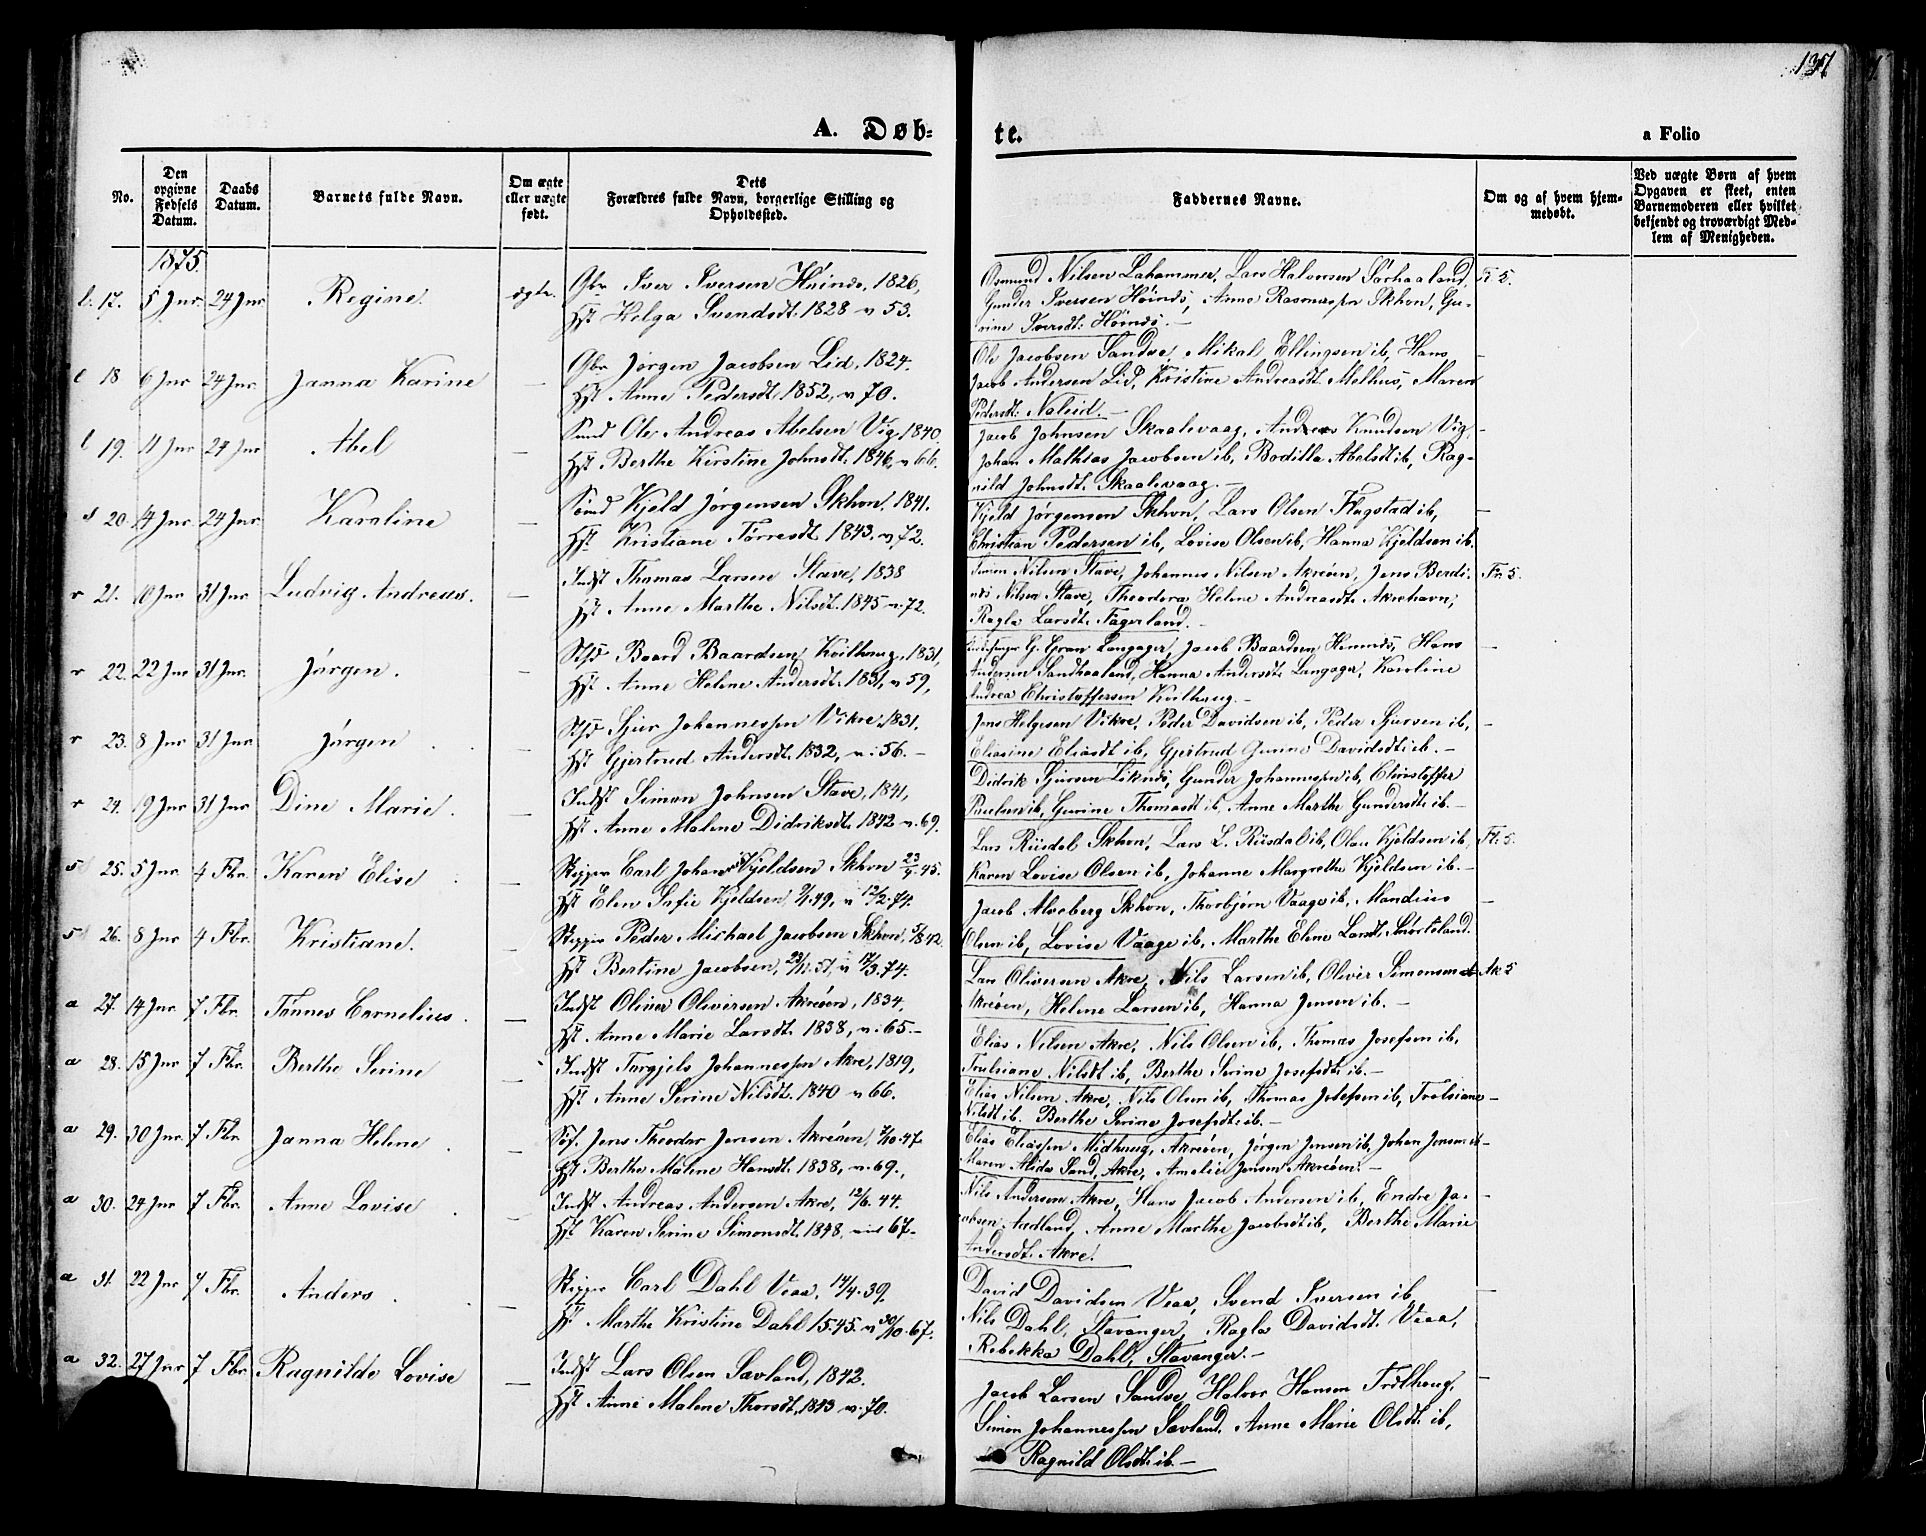 137
A. Døb-
te.
a Folio
No.
Den opgivne Fødsels Datum.
Daabs Datum.
Barnets fulde Navn.
Om ægte eller uægte født.
Dets Forældres fulde Navn, borgerlige Stilling og Opholdssted.
Faddernes Navne.
Om og af hvem hjemmedøbt.
Ved uægte Børn af hvem Opgaven er skeet, enten Barnemoderen eller hvilket bekjendt og troværdigt Medlem af Menigheden.
1875.
17. 5 Jnr. 24 Jnr. Regine. ægte. Gbr Iver Iversen Høinds, 1826,
Hst Helga Svendsdt. 1828 v. 53.
Osmund Nilsen Lahammer, Lars Halvorsen Sørhaaland,
Gunder Iversen Høinds, Anne Rasmussen Skhvn, Gu-
rine Iversdt. Høinds. —
18 6 Jnr 24 Jnr. Janna Karine — Gbr Jørgen Jacobsen Lid, 1824.
Hst Anne Pedersdt. 1852, v. 70.
Ole Jacobsen Sandve, Mikal Ellingsen ib, Hans
Jacob Andersen Lid, Kristine Andreasdt. Melhus, Maren
Pedersdt. Naleid. —
19. 11 Jnr 24 Jnr Abel — Smd Ole Andreas Abelsen Vig, 1840.
Hst Berthe Kirstine Johnsdt. 1846, v. 66.
Jacob Johnsen Skaalevaag, Andreas Knudsen Vig,
Johan Mathias Jacobsen ib, Bodilla Abelsdt ib, Rag-
nild Johnsdt. Skaalevaag. —
20 14 Jnr. 24 Jnr. Karoline — Sømd Kjeld Jørgensen Skhvn, 1841.
Hst Kristiane Tørresdt. 1843. v. 72.
Kjeld Jørgensen Skhvn, Lars Olsen Flagstad ib,
Christian Pedersen ib, Lovise Olsen ib, Hanna Kjeldsen ib.
21. 10 Jnr 31 Jnr. Ludvig Andreas. — Indst Thomas Larsen Stave, 1838
Hst Anne Marthe Nilsdt. 1845 v. 72.
Simon Nilsen Stave, Johannes Nilsen Akreøen, Jens Berdi-
nes Nilsen Stave, Theodora Helene Andreasdt. Akrehavn,
Ragla Larsdt. Fagerland. —
22. 22 Jnr 31 Jnr. Jørgen. — Baard Baardsen Kvilhaug, 1831,
Hst Anne Helene Andersdt. 1831, v. 59,
G. Gran Langager, Jacob Baardsen Hemnes, Hans
Andersen Sandhaaland, Hanna Andersdt. Langager, Karoline
Andrea Christoffersen Kvilhaug. —
23. 8 Jnr 31 Jnr. Jørgen — Sjur Johannessen Vikre, 1831.
Hst Gjertrud Andersdt. 1832, v. 56. —
Jens Helgesen Vikre, Peder Davidsen ib, Peder Sjursen ib,
Eliasine Eliasdt ib, Gjertrud Gunne Davidsdt. ib. —
24. 19 Jnr 31 Jnr. Dine Marie. — Indst Simon Johnsen Stave, 1841,
Hst Anne Malene Didriksdt. 1842 v. 69.
Didrik Sjursen Liknes, Gunder Johannessen ib, Christoffer
Paulsen ib, Gurine Thomasdt ib, Anne Marthe Gundersdt. ib. —
25. 5 Jnr. 4 Fbr. Karen Elise — Skipper Carl Johan Kjeldsen Skhvn 23/9. 45.
Hst Elen Sofie Kjeldsen, 9/1. 49, v 12/2. 74.
Lars Riisdal Skhvn, Lars L. Riisdal ib, Olau Kjeldsen ib,
Karen Lovise Olsen ib, Johanne Margrethe Kjeldsen ib. —
26. 8 Jnr 4 Fbr. Kristiane. — Skipper Peder Michael Jacobsen Skhvn, 5/8. 42.
Hst Bertine Jacobsen, 51, v 3. 74.
Jacob Alveberg Skhvn, Thorbjørn Vaage ib, Mandius
Olsen ib, Lovise Vaage ib, Marthe Elene Larsdt. Snorteland.
27. 14 Jnr. 7 Fbr. Tønnes Cornelius. — Indst Oliver Oliversen Akreøen, 1834,
Hst. Anne Marie Larsdt. 1838, v. 65. —
Lars Oliversen Akre, Nils Larsen ib, Oliver Simonsen
Akreøen, Helene Larsen ib, Hanna Jensen ib. —
28. 15 Jnr. 7 Fbr. Berthe Serine — Indst Torgjels Johannessen Akre, 1819,
Hst. Anne Serine Nilsdt. 1840 v. 66.
Elias Nilsen Akre, Nils Olsen ib, Thomas Josefsen ib,
Trulsiane Nilsdt ib, Berthe Serine Josefsdt. ib. —
29. 30 Jnr. 7 Fbr. Janna Helene — Søf. Jens Theodor Jensen Akreøen, 47
Hst. Berthe Malene Hansdt. 1838, v. 69.,
Elias Nilsen Akre, Nils Olsen ib, Thomas Josefsen ib, Trolsiane
Nilsdt ib, Berthe Serine Josefsdt. ib. —
Elias Eliassen Midhaug, Akreøen, Jørgen Jensen ib, Johan Jensen ib
Maren Sand, Akre, Amelie Jensen Akreøen. —
30. 24 Jnr 7 Fbr. Anne Lovise — Indst Andreas Andersen Akre, 12/6. 44.
Hst. Karen Serine Simonsdt. 1848, viet 67. —
Nils Andersen Akre, Hans Jacob Andersen ib, Endre Ja-
cobsen Aadland, Anne Marthe Jacobsdt ib, Berthe Marie
Andersdt. Akre.
31. 22 Jnr 7 Fbr. Anders — Skipper Carl Dahl Veaa, 14/4. 39,
Hst. Marthe Kristine Dahl 15. 45. v 30/10. 67.
David Davidsen Veaa, Svend Iversen ib,
Nils Dahl, Stavanger, Ragla Davidsdt. Veaa,
Rebekka Dahl, Stavanger. —
32. 27 Jnr 7 Fbr. Ragnilde Lovise — Indst Lars Olsen Sævland, 1842.
Hst. Anne Malene Thorsdt, 1843 v. 70.
Jacob Larsen Sandve, Halvor Hansen
Simon Johannessen Sævland, Anne Marie Olsdt. ib,
Ragnild Olsdt. ib. —